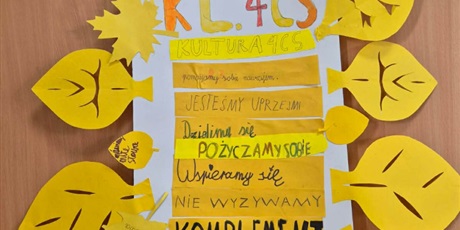 KL. 4CS
KULTURA 4CS
pomagamy sobie nawzajem.
JESTEŚMY UPRZEJMI
Dzielimy się
POŻYCZAMY SOBIE
Wspieramy się
NIE WYZYWAMY